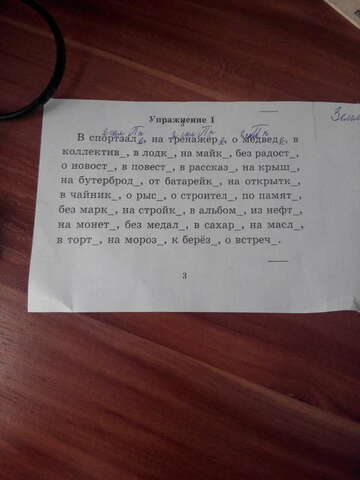 Упражнение 1
В спортзал_, на тренажёр_, о медвед_, в
коллектив_, в лодк_, на майк_, без радост_,
о новост_, в повест_, в рассказ_, на крыш_,
на бутерброд_, от батарейк_, на открытк_,
в чайник_, о рыс_, о строител_, по памят_,
без марк_, на стройк_, в альбом_, из нефт_,
на монет_, без медал_, в сахар_, на масл_,
в торт_, на мороз_, к берёз_, о встреч_.
3